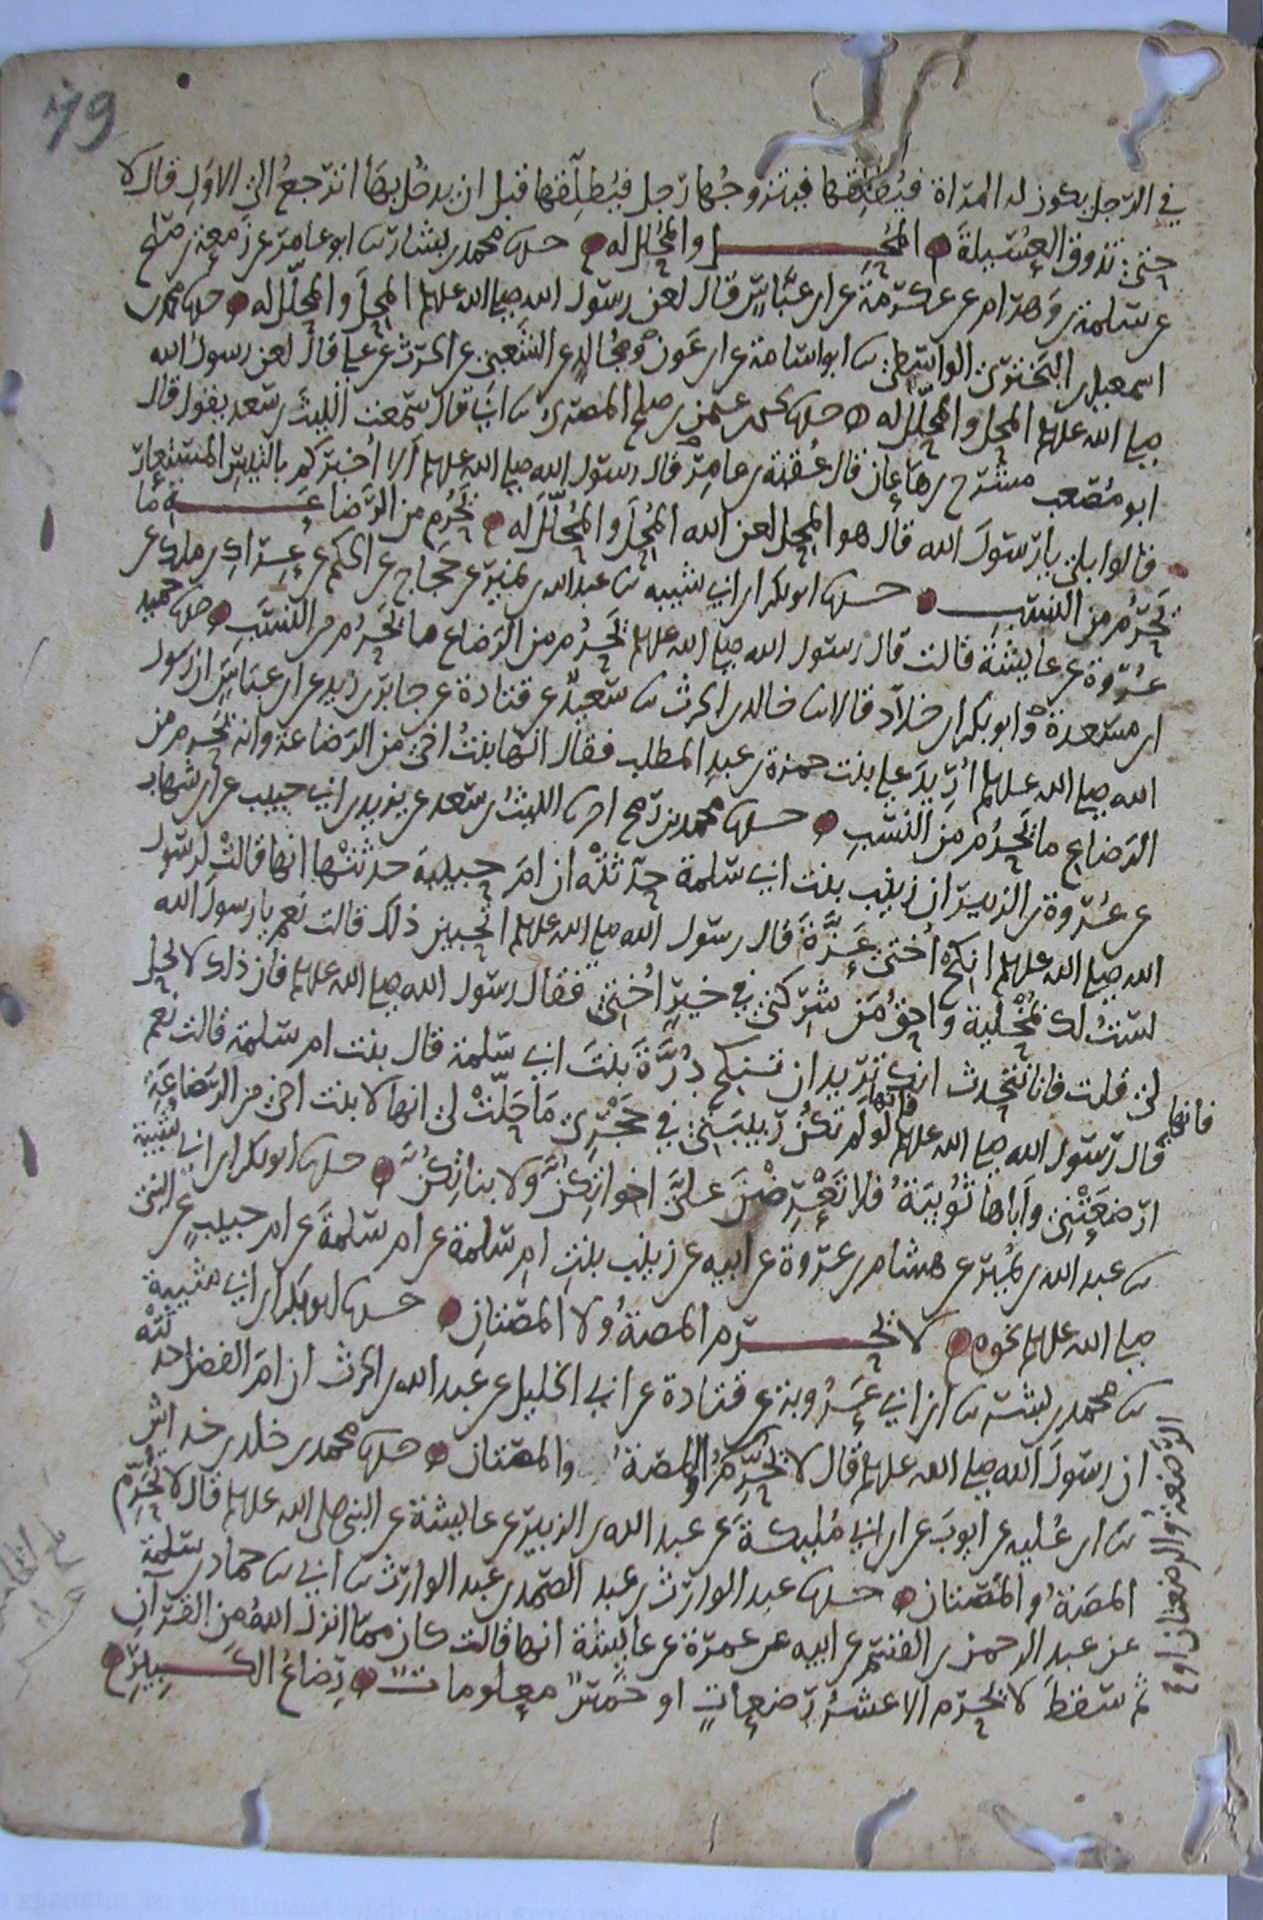 79
في الرجل يكون له المرأة فيُطلِّقها فيتزوجُها رجل فيُطلِّقها قبل ان يدخل بها اترجعُ الى الاوّلِ قال لا
حتى تذوق العُسَيلةَ المُحِل والمُحلَّل له حدثنا محمد بن بشار ثنا ابو عامر عن زمعة بن صالح
عن سلمة بن وهرام عن عكرمة عن ابن عباس قال لعن رسول الله صلى الله عليه وسلم المحِلَّ والمحلَّل له حدثنا محمد بن
اسمعيل بن البَختري الواسطي ثنا ابو اسامة عن ابن عون ومجالد عن الشعبي عن الحرث عن علي قال لعن رسول الله
صلى الله عليه وسلم المحل والمحلَّل له حدثنا يحيى بن عثمن بن صلح المصري ثنا ابي قال سمعت الليث بن سعد يقول قال
ابو مُصعب مشرح بن هاعان قال عُقبة بن عامر قال رسول الله صلى الله عليه وسلم الا اُخبركم بالتيس المستعار
قالوا بلى يا رسولَ الله قال هو المحِل لعن الله المُحِلَّ والمُحلَّلَ له يَحرُم من الرَّضاعَة ما
يَحرُم من النسب حدثنا ابو بكر ابن ابي شيبه ثنا عبد الله بن نمير عن حجاج عن الحكم عن عِراك بن ملك عن
عُروة عن عايشة قالت قال رسول الله صلى الله عليه وسلم يَحرُم من الرَّضاع ما يَحرُم من النسَب وحدثنا حميد
ابن مسعدة وابو بكر ابن خلاّد قالا ثنا خالد بن الحرث ثنا سعيد عن قتادة عن جابر بن زيد عن ابن عباس ان رسول
الله صلى الله عليه وسلم اُرِيدَ على بنت حمزة بن عبد المطلب فقال انها بنتُ اخي من الرَّضاعة وانه يَحرم من
الرَّضاع ما يَحرُم من النسَبِ حدثنا محمد بن رمح اخبرنا الليثُ بن سعد عن يزيد بن ابي حبيب عن ابن شهاب
عن عُروة بن الزبير ان زينب بنت ابي سلمة حدَّثتْه ان امَ حبيبةَ حدثتْها انها قالتْ لرسول
الله صلى الله عليه وسلم انكِح اُختي عَزَّةَ قال رسول الله صلى الله عليه وسلم اتُحِبين ذلك قالت نعم يا رسول الله
لستُ لك بمُخْلية واحقُ مَن شرِكني في خيرٍ اُختي فقال رسول الله صلى الله عليه وسلم فان ذلك لا يحل
لي قلت فانا نتحدث انك تريد ان تنكح دُرَّةَ بنتَ ابي سلمة قال بنت ام سلمة قالت نعم
قال رسول الله صلى الله عليه وسلم فانها لو لم تكن ربيبتي في حَجْري مَا حَلّتْ لي انها لابنت اخي من الرَّضاعَةِ
فانها
ارضعَتْني واَباها ثُوَيبَةُ فلا تَعْرِضْنَ علىَّ اخواتِكُنَّ ولا بناتِكُنَّ حدثنا ابو بكر ابن ابي شَيبة
ثنا عبد الله بن نُمير عن هشام بن عروة عن ابيه عن زينب بنتِ امِ سلمة عن ام سلمةَ عن ام حبيبةَ عن النبي
صلى الله عليه وسلم نحوه لا تُحَرّم المصةُ ولا المصّتانِ حدثنا ابو بكر ابن ابي شيبة
ثنا محمد بن بشر ثنا ابن ابي عَرُوبة عن قتادة عن ابي الخليل عن عبد الله بن الحرث ان امَ الفضل حدثتْه
ان رسولَ الله صلى الله عليه وسلم قال لا تُحَرِّمُ المصةُ والمصتان حدثنا محمد بن خلد بن خداش
الرَّضعةُ والرضعتان او
ثنا ابن عُليه عن ايوبَ عن ابن ابي مُليكةَ عن عبد الله بن الزبير عن عايشة عن النبي صلى الله عليه وسلم قال لا تُحَرّم
المصَةُ والمَصتان حدثنا عبد الوارث بن عبد الصمد بن عبد الوارث ثنا ابي ثنا حماد بن سلمة
عن عبد الرحمن بن القسم عن ابيه عن عمرة عن عايشة انها قالت كان مما انزل اللهُ من القرآن
ثم سقطَ لا يحرّم الا عشرُ رَضعاتٍ او خمسٌ معلومات رِضاعُ الكَبِيرِ